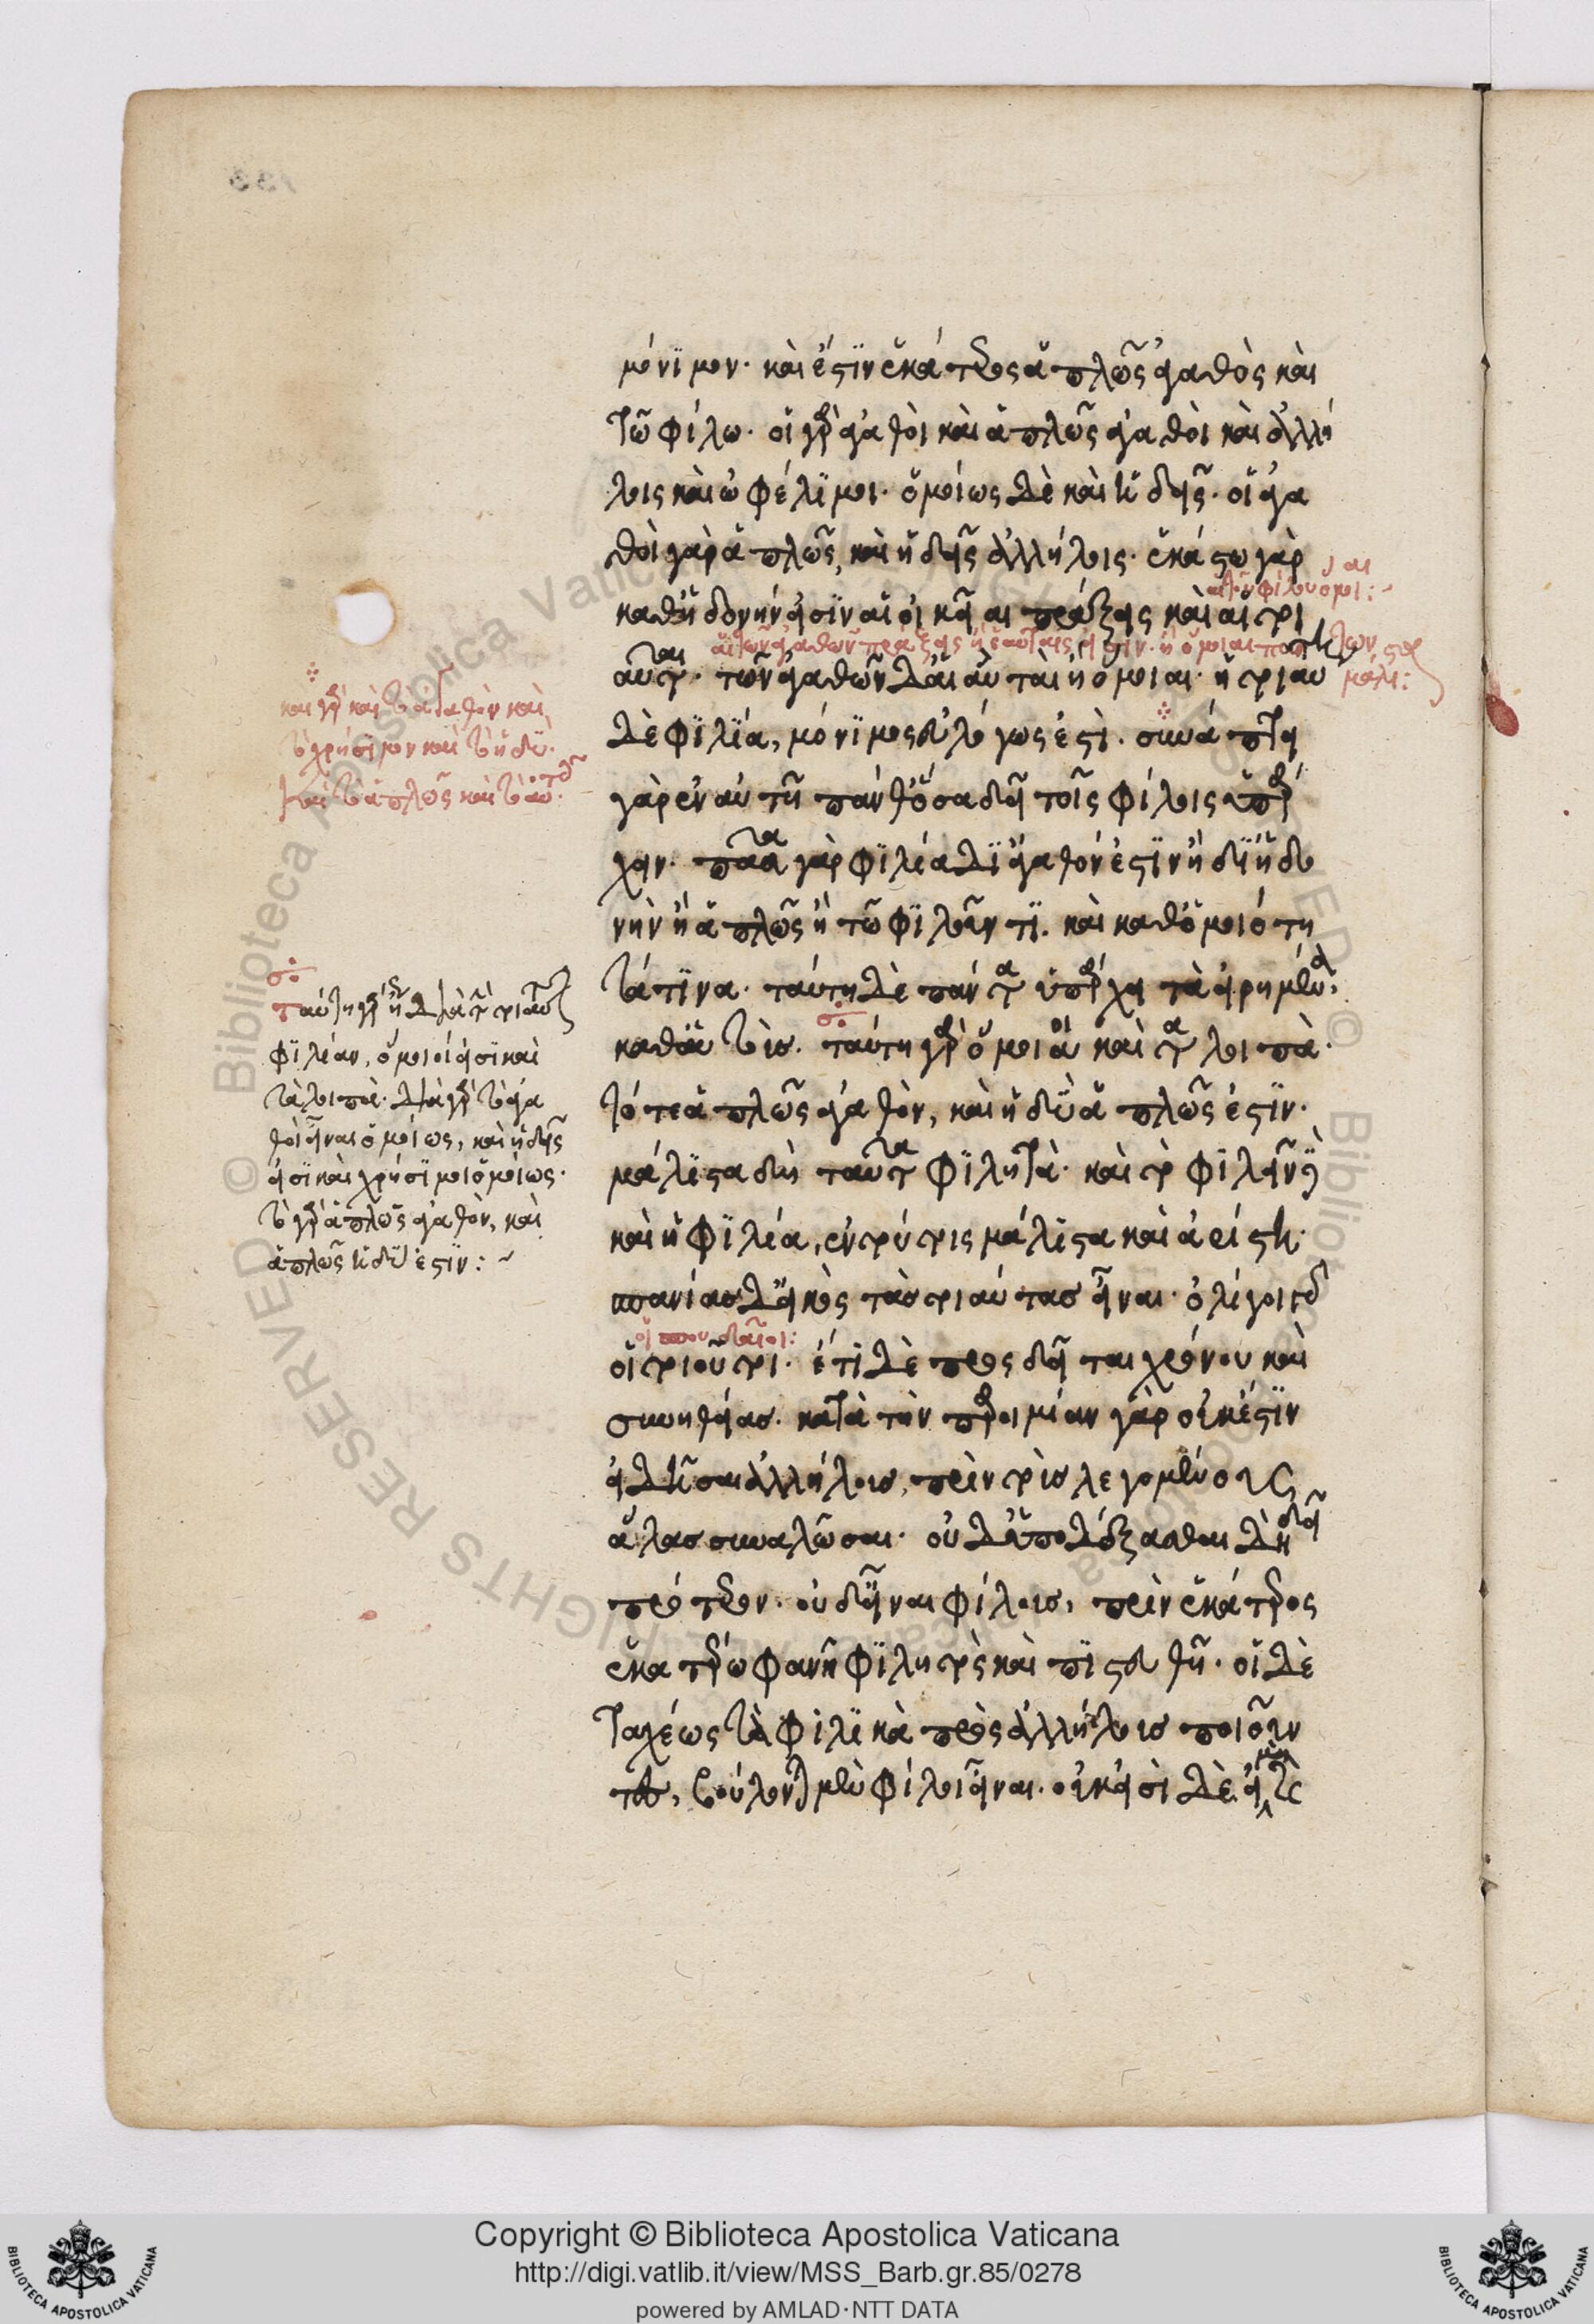 μόνιμον· καὶ ἔστιν ἑκάτερος ἁπλῶς ἀγαθὸς καὶ
τῷ φίλῳ· οἱ γὰρ ἀγαθοὶ καὶ ἁπλῶς ἀγαθοὶ καὶ ἀλλή
λοις καὶ ὠφέλιμοι· ὁμοίως δὲ καὶ ἡδεῖς· οἱ ἀγα
θοὶ γὰρ ἁπλῶς, καὶ ἡδεῖς ἀλλήλοις· ἑκάστῳ γὰρ
καθ' ἡδονήν εἰσϊν αἱ οἰκεῖαι πράξεις καὶ αἱ τοι
αῦται· τῶν ἀγαθῶν δὲ αἱ αὐταὶ ἢ ὅμοιαι· ἡ τοιαύτη
δὲ φϊλϊά, μόνϊμος εὐλόγως ἐστὶ. συνάπτει
γὰρ ἐν αὐτῇ πάνθ' ὅσα δεῖ τοῖς φίλοις ὑπάρ
χειν· πᾶσα γὰρ φϊλία δϊ' ἀγαθόν ἐστϊν ἢ δϊ' ἡδο
νὴν ἢ ἁπλῶς ἢ τῷ φϊλοῦντϊ. καὶ καθ' ὁμοιότη
τά τϊνα· ταύτῃ δὲ πάντα ὑπάρχει τὰ εἰρημένα·
καθ' αὑτούς. ταύτῃ γὰρ ὅμοιοι καὶ τὰ λοιπὰ·
τό τε ἁπλῶς ἀγαθὸν, καὶ ἡδὺ ἁπλῶς ἐστϊν·
μάλϊστα δὴ ταῦτα φϊλητὰ· καὶ τὸ φϊλεῖν δὲ
καὶ ἡ φϊλία, ἐν τούτοις μάλϊστα καὶ ἀρίστη·
σπανίας δ' εἰκὸς τὰς τοιαύτας εἶναι· ὀλίγοι γὰρ
οἱ σπουδαῖοι:
οἱ τοιοῦτοι· ἔτϊ δὲ προσδεῖται χρόνου καὶ
συνηθείας. κατὰ τὴν παροιμίαν γὰρ οὐκ ἔστϊν
εἰδῆσαι ἀλλήλους, πρὶν τοὺς λεγομένους
ἅλας συναλῶσαι· οὐδ' ἀποδέξασθαι δὴ δεῖ
πρότερον· οὐδ' εἶναι φίλους, πρὶν ἑκάτερος
ἑκατέρῳ φανῇ φϊλητὸς καὶ πϊστευθῇ· οἱ δὲ
ταχέως τὰ φιλϊκὰ πρὸς ἀλλήλους ποιοῦν
ται, βούλονται μὲν φίλοι εἶναι· οὐκ εἰσὶ δὲ εἰ μὴ
και γὰρ καὶ τὸ ἀγαθὸν καὶ
τὸ χρήσϊμον καὶ τὸ ἡδὺ·
καὶ τὸ ἁπλῶς καὶ τὸ
ταύτῃ γὰρ τῇ διὰ
φϊλίαν, ὅμοιοί εἰσϊ καὶ
τὰ λοιπὰ· διὰ γὰρ τὸ ἀγα
θοὶ εἶναι ὁμοίως, καὶ ἡδεῖς
εἰσϊ καὶ χρήσϊμοι ὁμοίως·
τὸ γὰρ ἁπλῶς ἀγαθὸν, καὶ
ἁπλῶς ἡδὺ ἐστϊν:
Copyright © Biblioteca Apostolica Vaticana
http://digi.vatlib.it/view/MSS_Barb.gr.85/0278
powered by AMLAD·NTT DATA